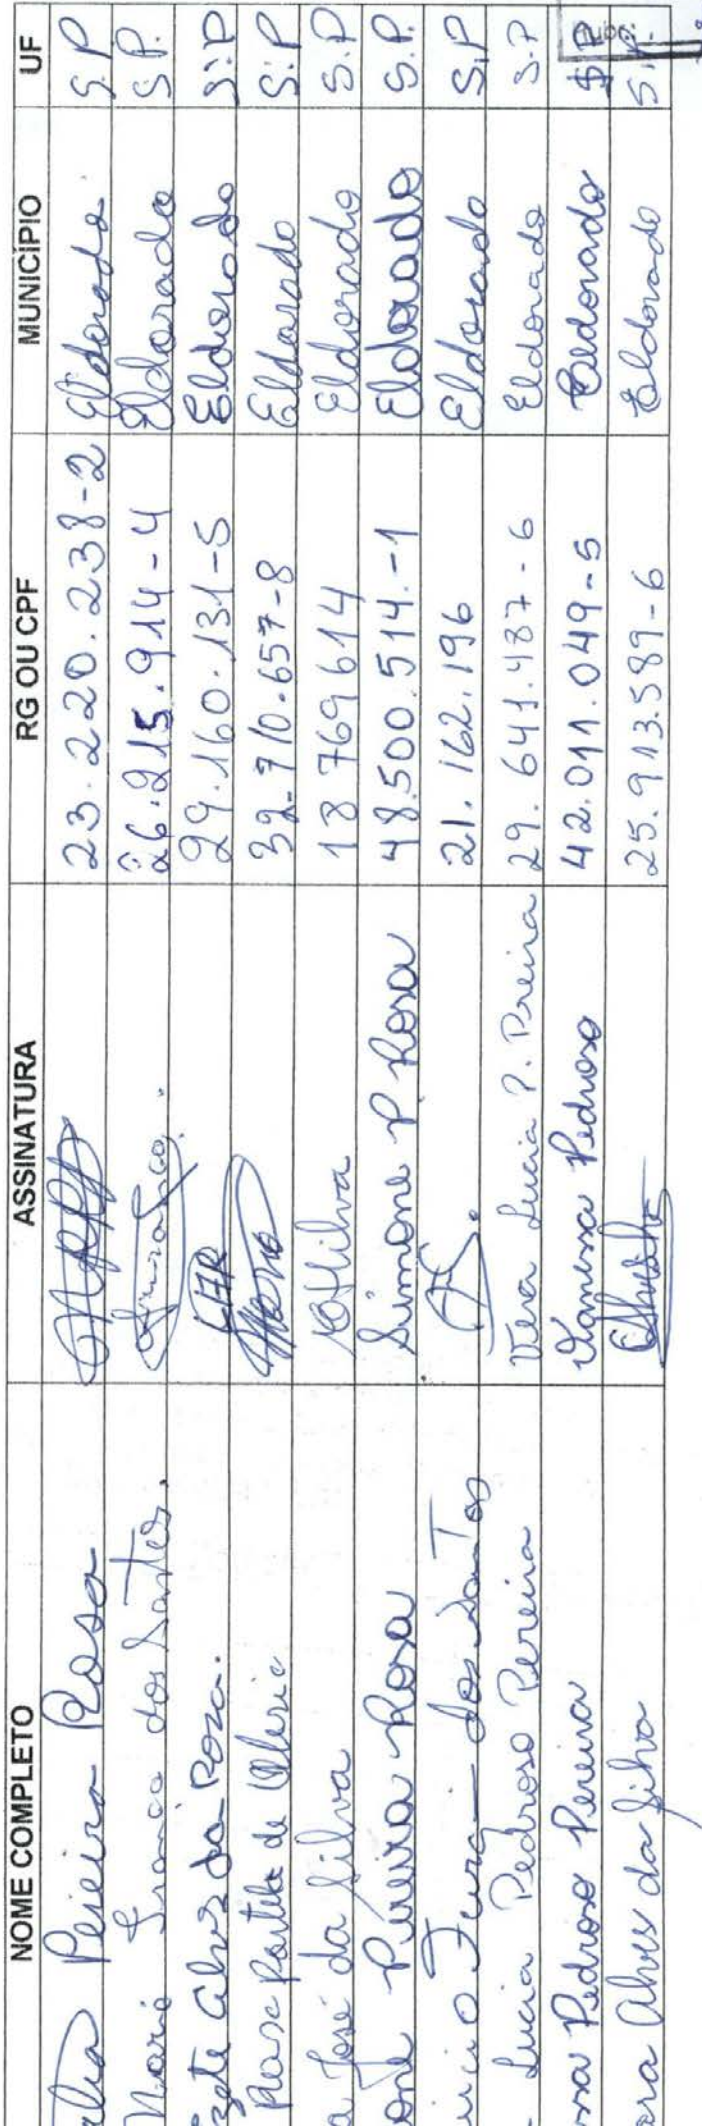 NOME COMPLETO ASSINATURA RG OU CPF MUNICÍPIO UF
Pereira Rosa 23.220.238-2 Eldorado S.P
Maria França dos Santos. 26.215.914-4 Eldorado S.P.
Alves da Rosa. 29.160.131-5 Eldorado S.P
Rosa 32.710.657-8 Eldorado S.P
José da Silva 18769614 Eldorado S.P
Pereira Rosa Simone P Rosa 48.500.514.-1 Eldorado S.P.
dos Santos 21.162.196 Eldorado S.P
Lucia Pedroso Pereira Vera Lucia P. Preira 29.641.487-6 Eldorado S.P
Pedroso Pereira Vanessa Pedroso 42.011.049-5 Eldorado S.P
Alves da Silva 25.913.589-6 Eldorado S.P.